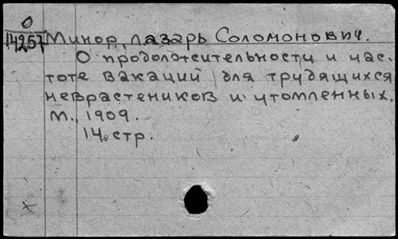 О
14257 Минор, Лазарь Соломонович.
О продолжительности и час-
тоте вакаций для трудящихся
неврастеников и утомленных.
М., 1909.
14 стр.
х